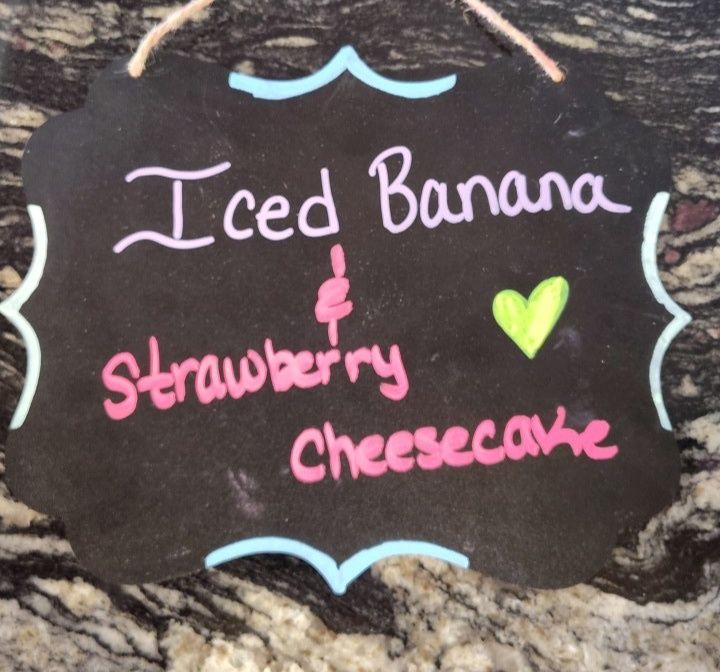 Iced Banana
&
Strawberry
Cheesecake